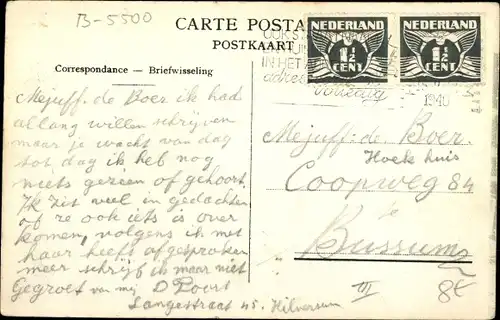 B-5500
CARTE POSTA
POSTKAART
Correspondance — Briefwisseling
NEDERLAND
1½
CENT
NEDERLAND
1½
CENT
IN HET
adres
volledig
1940
Mejuff. de Boer ik had
allang willen schrijven
maar je wacht van dag
tot dag ik heb nog
niets gezien of gehoord.
Ik zit veel in gedachten
of ze ook iets is over
komen, volgens ik met
haar heeft afgesproken
meer schrijf ik maar niet
Gegroet van mij D Poort
Langestraat 45. Hilversum
Mejuff: de Boer.
Hoek huis
Coopweg 84
te
Bussum
III
8€